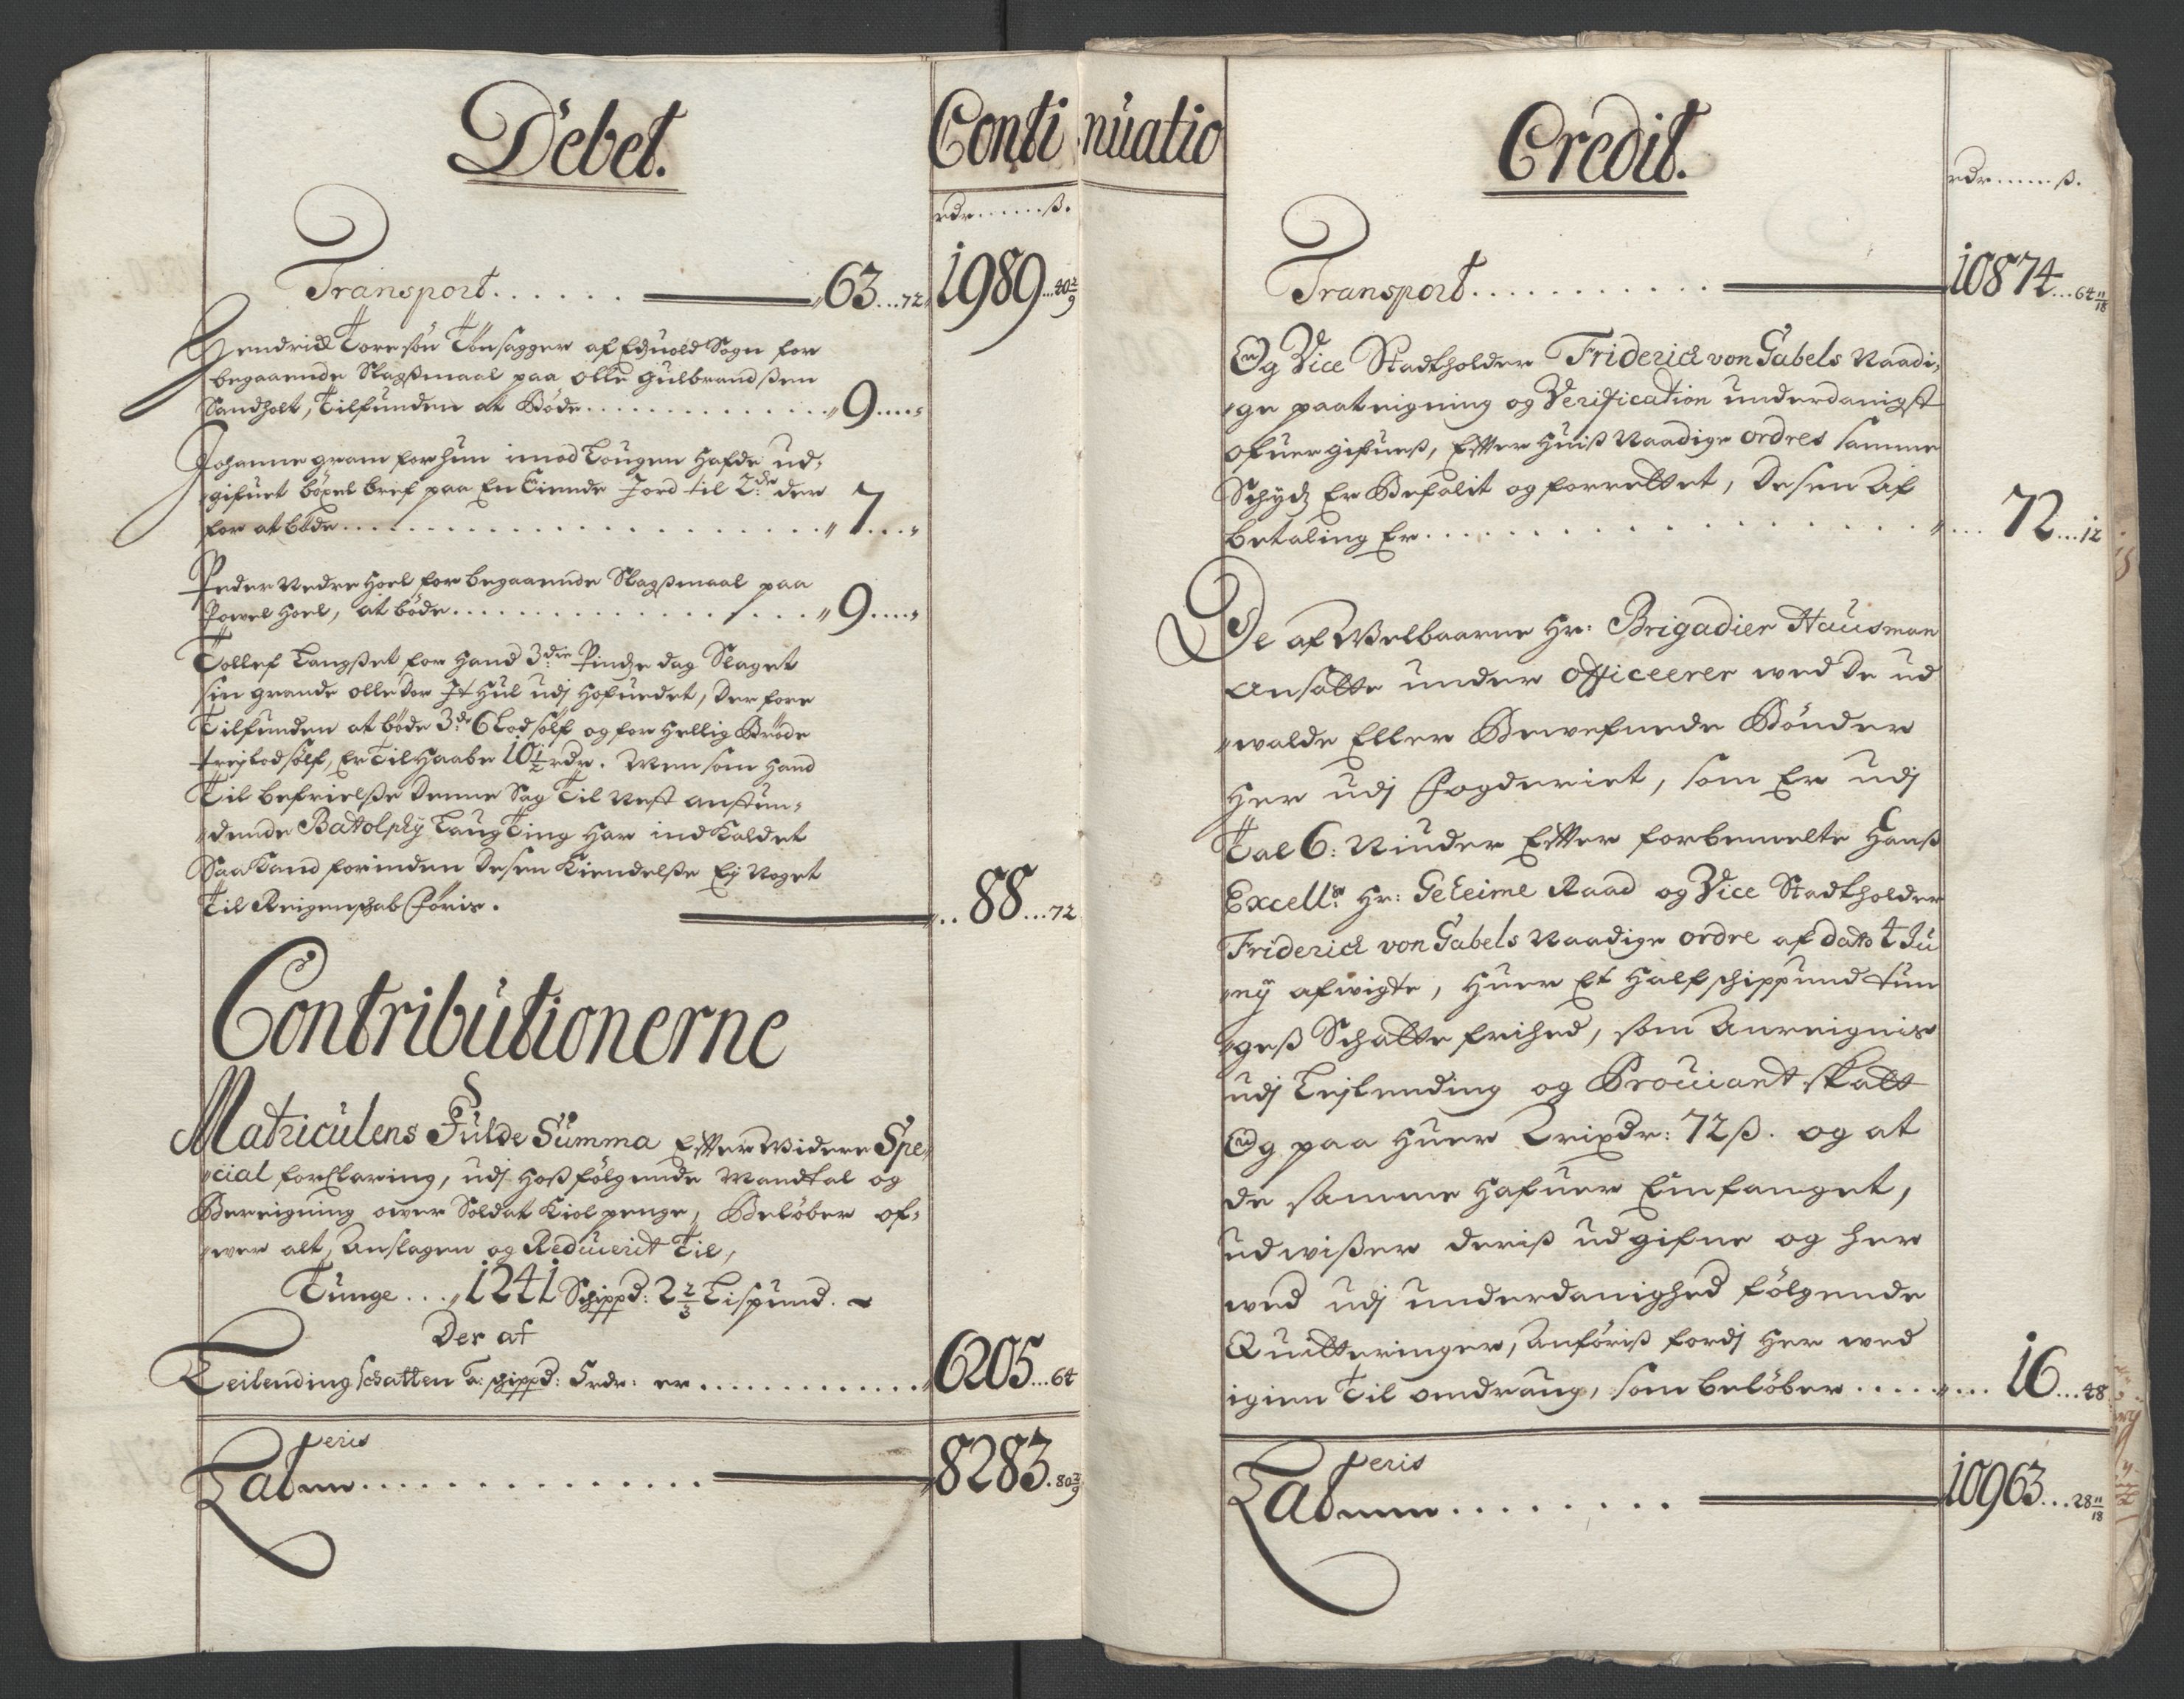 Debet.
Continuatio
rdr......ß.
Transport...... 63...72 1989...40 2/9
Hendrick Toresøn Tonsagger af Eduold Sogn for
begaaende Slagsmaal paa Olle Gulbrandßen
Sandholt, Tilfunden at Bøde.............. 9....
Johanne gram for hun imod Lougen hafde ud-
gifuet bøxel bref paa En Tiende Jord til 2de der
for at bøde..................... 7....
Peder Nedre Hoel for begaaende Slagsmaal paa
Powel Hoel, at bøde................ 9....
Tollef Langßet for hand 3die Pindze dag Slaget
sin grande olle Dor It Hul udj Hofuedet, derfore
Tilfunden at bøde 3de 6 Lod sølf og for Hellig Brøde
trej Lod sølf, Er Til Haabe 10 1/2 rdr. Men som hand
Til befrielße denne Sag Til Nest anstun-
dende Batolphj Laug Ting har ind Kaldet
Saa Kand forinden desen Kiendelße Ej Noget
Til Reigenschab Føris. .. 88...72
Contributionerne
Matriculens Fulde Summa Efter Widere Spe-
cial forklaring, udj Hoßfølgende Mandtal og
Bereigning ower Soldat Kiol penge, Beløber of-
wer alt, Anslagen og Reducerit Til,
Tunge... 1241 Schippd: 2 2/3 Lispund.
Der af
Leilending schatten a: schippd: 5 rdr: er............ 6205...64
Lateris
................. 8283. 80 2/9
Credit.
rdr.....ß.
Transport........... 10874...64 11/18
Og Vice Stadtholder Friderick von Gabels Naadi-
ge paateigning og Verification underdanigst
ofuergifueß, Efter Huiß Naadige ordres samme
Schydz Er Befalit og forrettet, desen Af
betaling Er.................. 72...12
De af Welbaarne Hr: Brigadier Hausman
Ansatte under officeerer wed de ud
walde Eller Bewefnede Bønder
her udj Fogderiet, som Er udj
Tal 6: Niuder Efter forbemelte Hans
Excell: Hr: Geheime Raad og Vice Stadtholder
Friderick von Gabels Naadige ordre af dato 4 Ju
nij afwigte, Huer Et Half schippund tun
geß Schatte frihed, som Anreignis
udj Lejlending og Prouiant skatt
Og paa Huer 2 rixdr: 72 ß. og at
de samme Hafuer Emfanget,
udwißer deriß udgifne og her
wed udj underdanighed følgende
Quitteringer, Anføriß fordj Her wed
igien Til omdraug, som beløber........ 16...48
Lateris
........ 10963...28 11/18